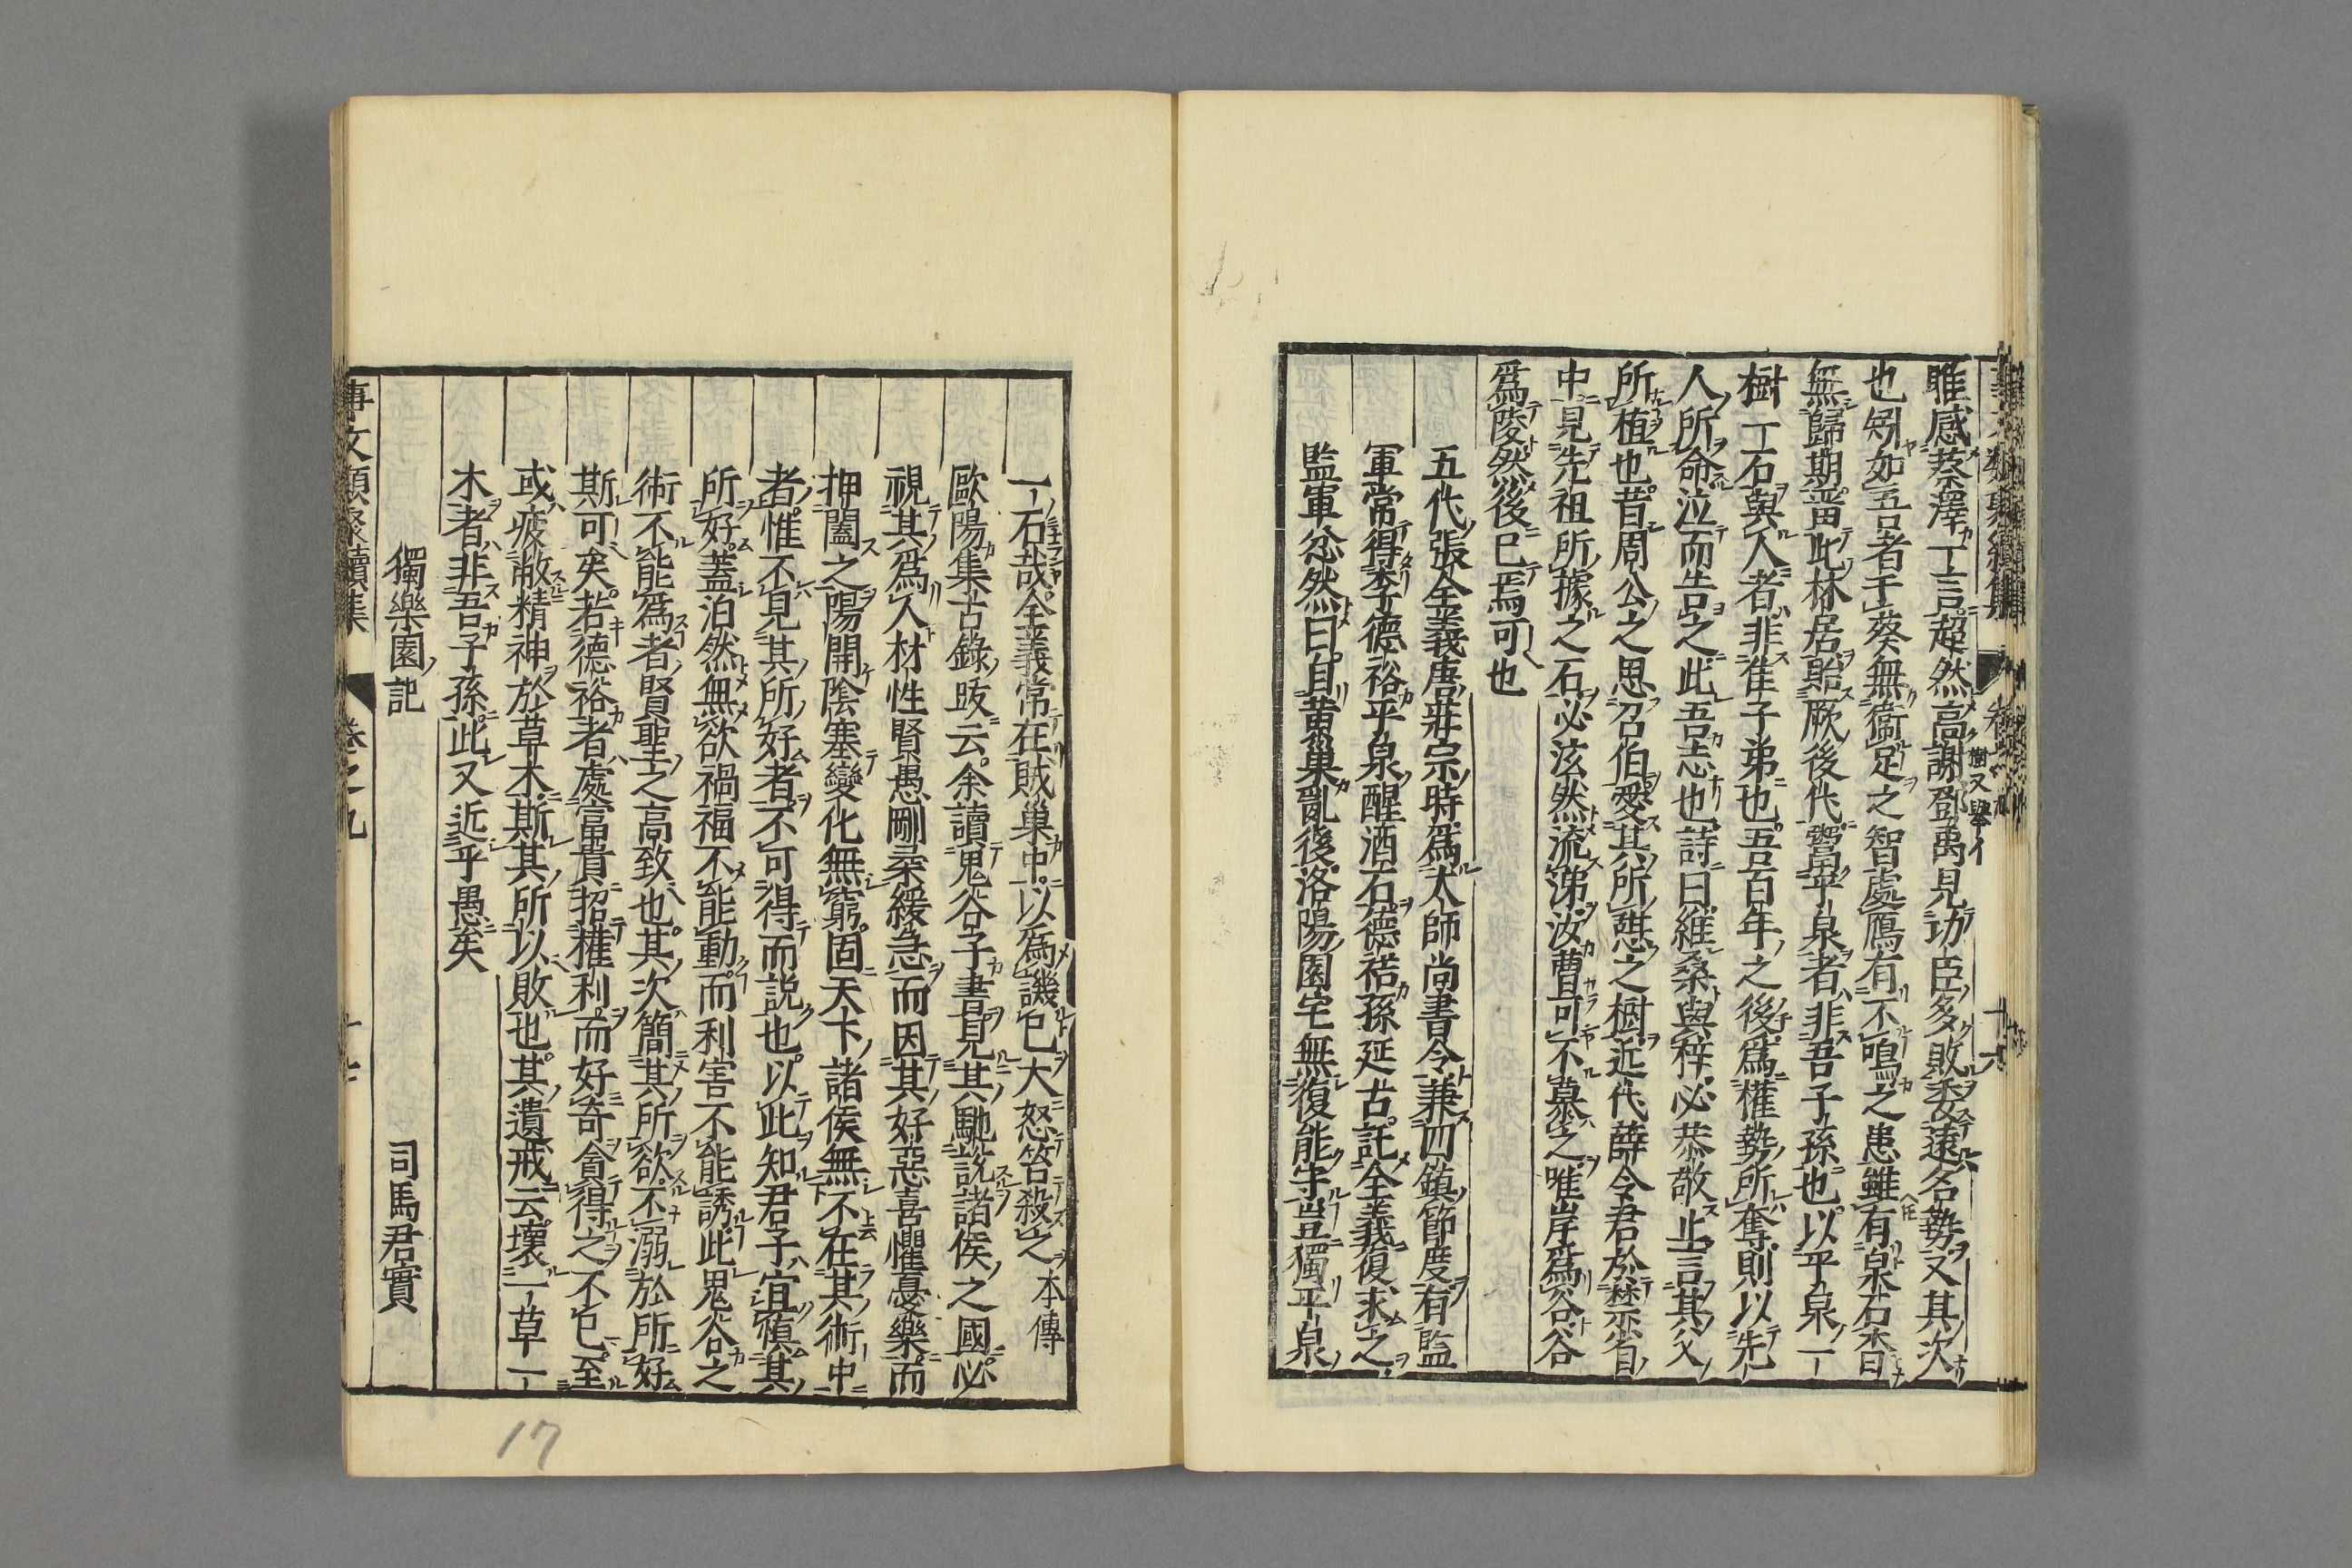 睢感蔡澤一言超然高謝鄧禹見功臣多敗委遠名勢又其次
也矧如吾者于葵無衞足之智處鴈有不鳴之患雖有泉石杳
無歸期畱此林居貽厥後代鬻平泉者非吾子孫也以平泉一
樹一石與人者非佳子弟也吾百年之後爲權勢所奪則以先
人所命泣而告之此吾志也詩曰維桑與梓必恭敬止言其父
所植也昔周公之思召伯愛其所憇之樹近代薛令君於禁省
中見先祖所據之石必泫然流涕汝曹可不慕之唯岸爲谷谷
爲陵然後已焉可也
五代張全義唐莊宗時爲太師尚書令兼四鎮節度有監
軍常得李德裕平泉醒酒石德裕孫延古託全義復求之
監軍忿然曰自黄巢亂後洛陽園宅無復能守豈獨平泉
樹又舉イ
一石哉全義常在賊巢中以爲譏已大怒笞殺之 本傳
歐陽集古錄跋云余讀鬼谷子書見其馳説諸侯之國必
視其爲人材性賢愚剛柔緩急而因其好惡喜懼憂樂而
押闔之陽開陰塞變化無窮固天下諸侯無不在其術中
者惟不見其所好者不可得而説也以此知君子宜愼其
所好蓋泊然無欲禍福不能動而利害不能誘此鬼谷之
術不能爲者賢聖之高致也其次簡其所欲不溺於所好
斯可矣若德裕者處富貴招權利而好奇貪得之不已至
或疲敝精神於草木斯其所以敗也其遺戒云壞一草一
木者非吾子孫此又近乎愚矣
獨樂園記 司馬君實
事文類聚續集 卷之九
17